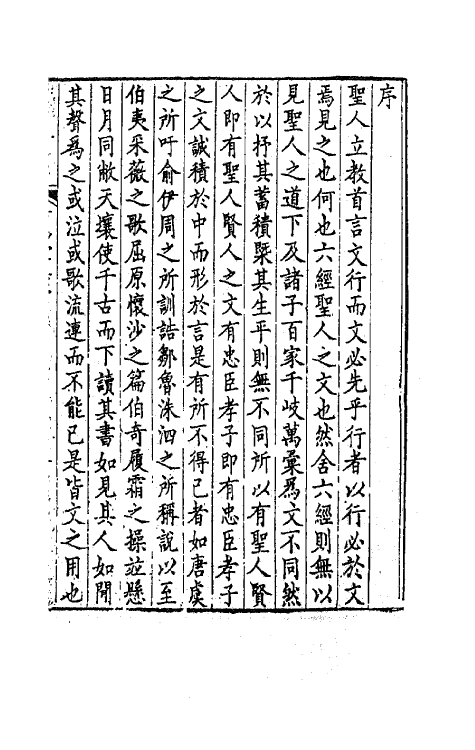 序
聖人立教首言文行而文必先乎行者以行必於文
焉見之也何也六經聖人之文也然舍六經則無以
見聖人之道下及諸子百家千岐萬彙爲文不同然
於以抒其蓄積槩其生平則無不同所以有聖人賢
人即有聖人賢人之文有忠臣孝子即有忠臣孝子
之文誠積於中而形於言是有所不得已者如唐虞
之所吁俞伊周之所訓誥鄒魯洙泗之所稱說以至
伯夷采薇之歌屈原懷沙之篇伯奇履霜之操並懸
日月同敝天壤使千古而下讀其書如見其人如聞
其聲爲之或泣或歌流連而不能已是皆文之用也